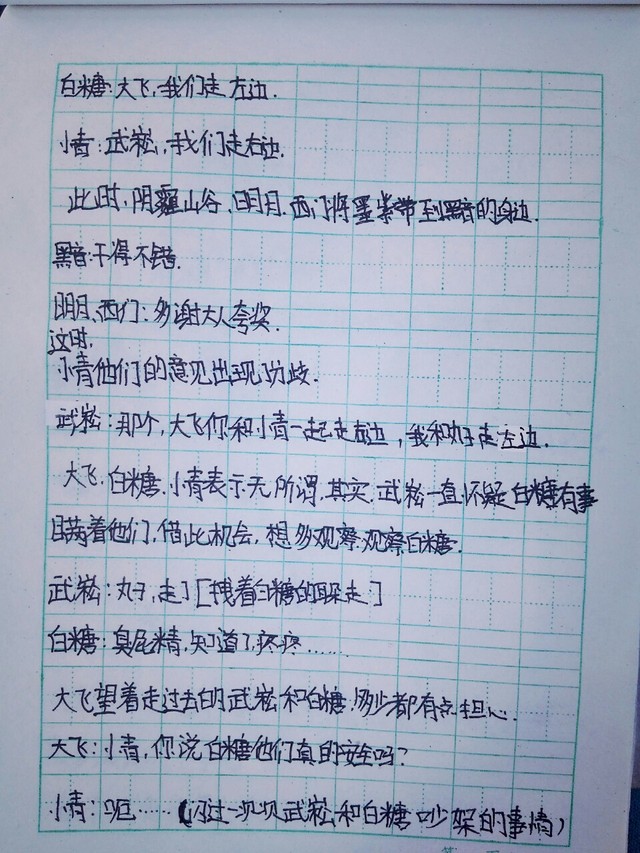 白糖:大飞,我们走左边.
小青:武崧,我们走右边.
此时,阴霾山谷,明月.西门将墨紫带到黯的身边.
黯:干得不错.
明月、西门:多谢大人夸奖.
这时,
小青他们的意见出现了分歧.
武崧:那个,大飞你和小青一起走右边,我和丸子走左边.
大飞,白糖.小青表示无所谓,其实.武崧一直怀疑白糖有事
瞒着他们,借此机会,想多观察观察白糖.
武崧:丸子,走了[拽着白糖的耳朵走]
白糖:臭屁精,知道了,疼疼……
大飞望着走过去的武崧和白糖,多少都有点担心.
大飞:小青,你说白糖他们真的安全吗?
小青:呃……(闪过一次次武崧和白糖吵架的事情)